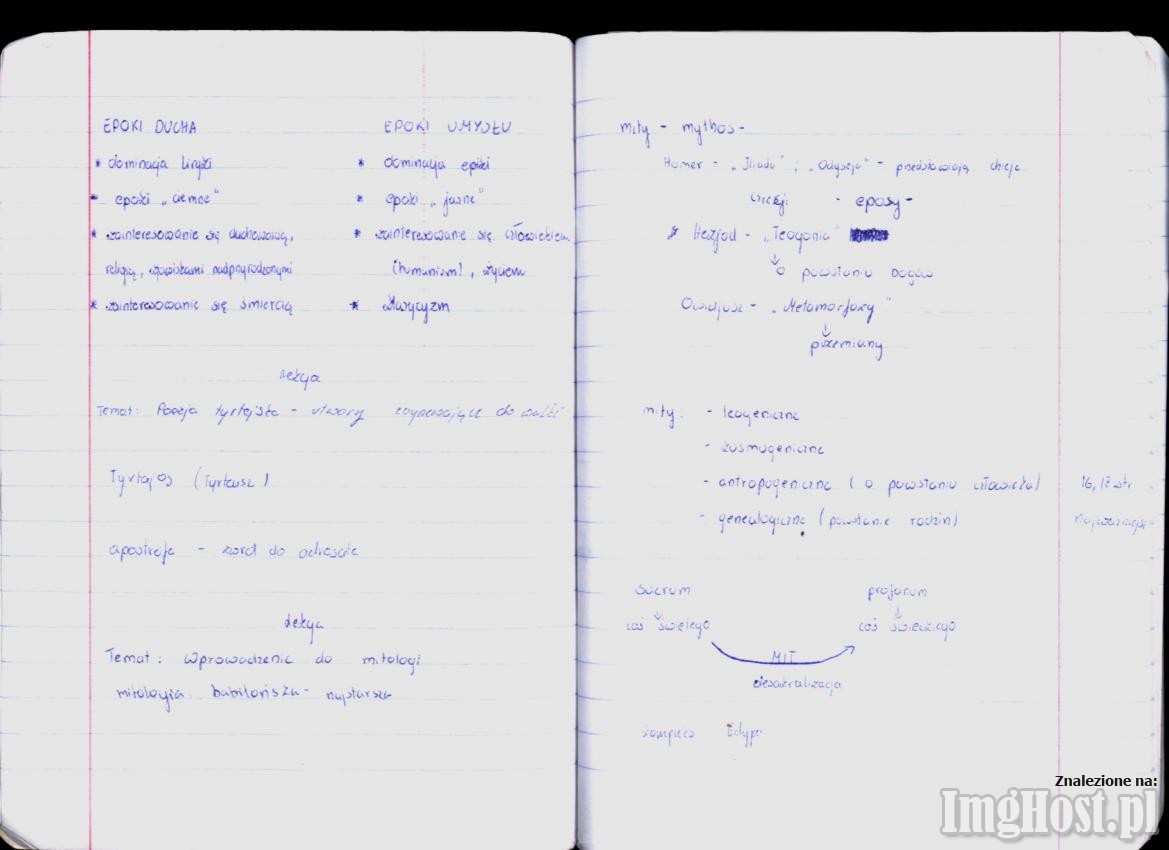 EPOKI DUCHA
* dominacja liryki
* epoki „ciemne"
* zainteresowanie się duchowością,
religią, zjawiskami nadprzyrodzonymi
* zainteresowanie się śmiercią
EPOKI UMYSŁU
* dominacja epiki
* epoki „jasne"
* zainteresowanie się człowiekiem
(humanizm), życiem
* klasycyzm
Lekcja
Temat: Poezja tyrtejska - utwory do walki
Tyrtajos (Tyrteusz)
apostrofa - zwrot do adresata
Lekcja
Temat: Wprowadzenie do mitologi
mitologia babilońska - najstarsza
mity - mythos -
Homer - „Iliada" ; „Odyseja" - przedstawiają dzieje
Grecji - eposy -
Hezjod - „Teogonia"
↓
o powstaniu bogów
Owidjusz - „Metamorfozy"
↓
przemiany
mity. - teogeniczne
- kosmogeniczne
- antropogeniczne (o powstaniu człowieka) 16, 17 str
- genealogiczne (powstanie rodzin)
sacrum profanum
↓ ↓
coś świętego coś świeckiego
MIT
desakralizacja
kompleks Edypa
Znalezione na:
ImgHost.pl